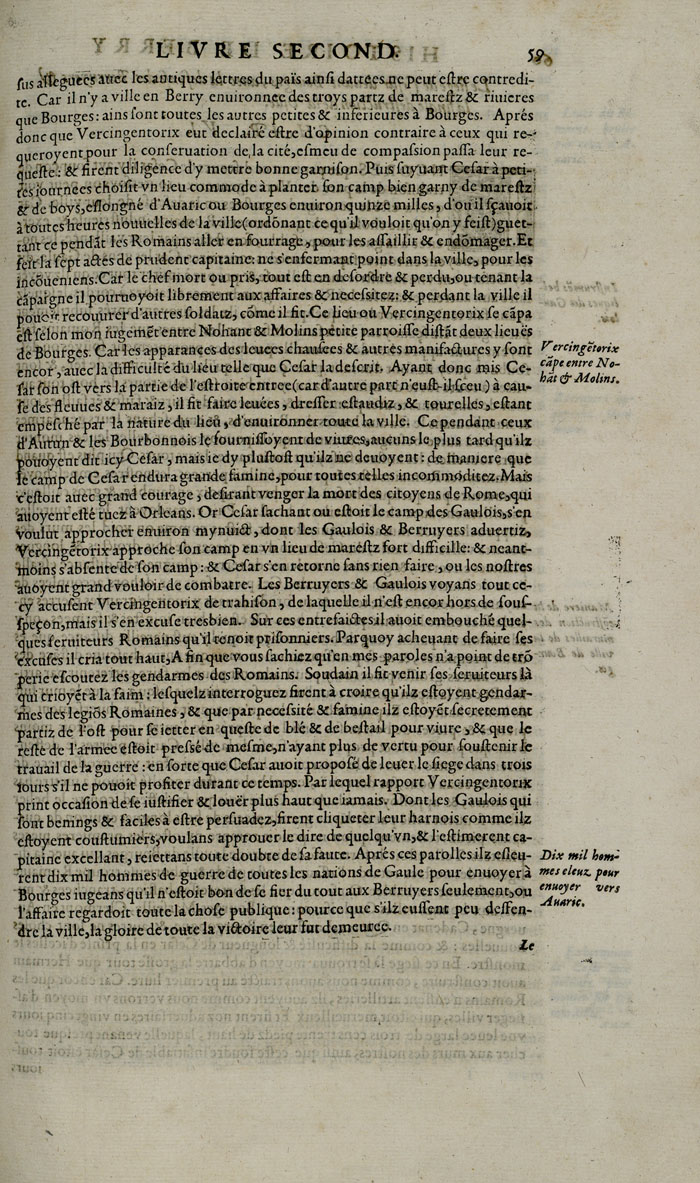 LIVRE SECOND. 59
ſus alleguees auec les antiques lettres du païs ainſi dattées ne peut eſtre contredi-
te. Car il n'y a ville en Berry enuironnee des troys partz de mareſtz & riuieres
que Bourges: ains ſont toutes les autres petites & inferieures à Bourges. Aprés
donc que Vercingentorix eut declairé eſtre d'opinion contraire à ceux qui re-
queroyent pour la conſeruation de la cité, eſmeu de compaſsion paſſa leur re-
queſte: & firent diligence d'y mettre bonne garniſon. Puis ſuyuant Ceſar à peti-
tes iournees choiſit vn lieu commode à planter ſon camp bien garny de mareſtz
& de boys, eſlongné d'Auaric ou Bourges enuiron quinze milles, d'ou il ſçauoit
à toutes heures nouuelles de la ville (ordōnant ce qu'il vouloit qu'on y feiſt) guet-
tant ce pendāt les Romains aller en fourrage, pour les aſſaillir & endōmager. Et
feit la ſept actes de prudent capitaine: ne s'enfermant point dans la ville, pour les
incōueniens. Car le chef mort ou pris, tout eſt en deſordre & perdu, ou tenant la
cāpaigne il pouruoyoit librement aux affaires & neceſsitez: & perdant la ville il
pouoit recouurer d'autres ſoldatz, cōme il fit. Ce lieu ou Vercingentorix ſe cāpa
eſt ſelon mon iugemēt entre Nohant & Molins petite parroiſſe diſtāt deux lieuës
de Bourges. Car les apparances des leuees chauſees & autres manifactures y ſont
encor, auec la difficulté du lieu telle que Ceſar la deſcrit. Ayant donc mis Ce-
ſar ſon oſt vers la partie de l'eſtroite entree (car d'autre part n'euſt-il ſceu) à cau-
ſe des fleuues & maraiz, il fit faire leuées, dreſſer eſtaudiz, & tourelles, eſtant
empeſché par la nature du lieu, d'enuironner toute la ville. Ce pendant ceux
d'Autun & les Bourbonnois le fourniſſoyent de viures, aucuns le plus tard qu'ilz
pouoyent dit icy Ceſar, mais ie dy pluſtoſt qu'ilz ne deuoyent: de maniere que
le camp de Ceſar endura grande famine, pour toutes telles incommoditez. Mais
c'eſtoit auec grand courage, deſirant venger la mort des citoyens de Rome, qui
auoyent eſté tuez à Orleans. Or Ceſar ſachant ou eſtoit le camp des Gaulois, s'en
voulut approcher enuiron mynuict, dont les Gaulois & Berruyers aduertiz,
Vercingētorix approche ſon camp en vn lieu de mareſtz fort difficille: & neant-
moins s'abſente de ſon camp: & Ceſar s'en retorne ſans rien faire, ou les noſtres
auoyent grand vouloir de combatre. Les Berruyers & Gaulois voyans tout ce-
cy accuſent Vercingentorix de trahiſon, de laquelle il n'eſt encor hors de ſouſ-
ſpeçon, mais il s'en excuſe tresbien. Sur ces entrefaictes il auoit embouché quel-
ques ſeruiteurs Romains qu'il tenoit priſonniers. Parquoy acheuant de faire ſes
excuſes il cria tout haut, A fin que vous ſachiez qu'en mes paroles n'a point de trō
perie eſcoutez les gendarmes des Romains. Soudain il fit venir ſes ſeruiteurs là
qui crioyēt à la faim: leſquelz interroguez firent à croire qu'ilz eſtoyent gendar-
mes des legiōs Romaines, & que par neceſsité & famine ilz eſtoyēt ſecretement
partiz de l'oſt pour ſe ietter en queſte de blé & de beſtail pour viure, & que le
reſte de l'armee eſtoit preſsé de meſme, n'ayant plus de vertu pour ſouſtenir le
trauail de la guerre: en ſorte que Ceſar auoit proposé de leuer le ſiege dans trois
iours s'il ne pouoit profiter durant ce temps. Par lequel rapport Vercingentorix
print occaſion de ſe iuſtifier & louër plus haut que iamais. Dont les Gaulois qui
ſont benings & faciles à eſtre perſuadez, firent cliqueter leur harnois comme ilz
eſtoyent couſtumiers, voulans approuer le dire de quelqu'vn, & l'eſtimerent ca-
pitaine excellant, reiettans toute doubte de ſa faute. Aprés ces parolles ilz eſleu-
rent dix mil hommes de guerre de toutes les nations de Gaule pour enuoyer à
Bourges iugeans qu'il n'eſtoit bon de ſe fier du tout aux Berruyers ſeulement, ou
l'affaire regardoit toute la choſe publique: pource que s'ilz euſſent peu deffen-
dre la ville, la gloire de toute la victoire leur fut demeuree.
Le
Vercingētorix
cāpe entre No-
hāt & Molins.
Dix mil hom-
mes eleuz pour
enuoyer vers
Auaric.